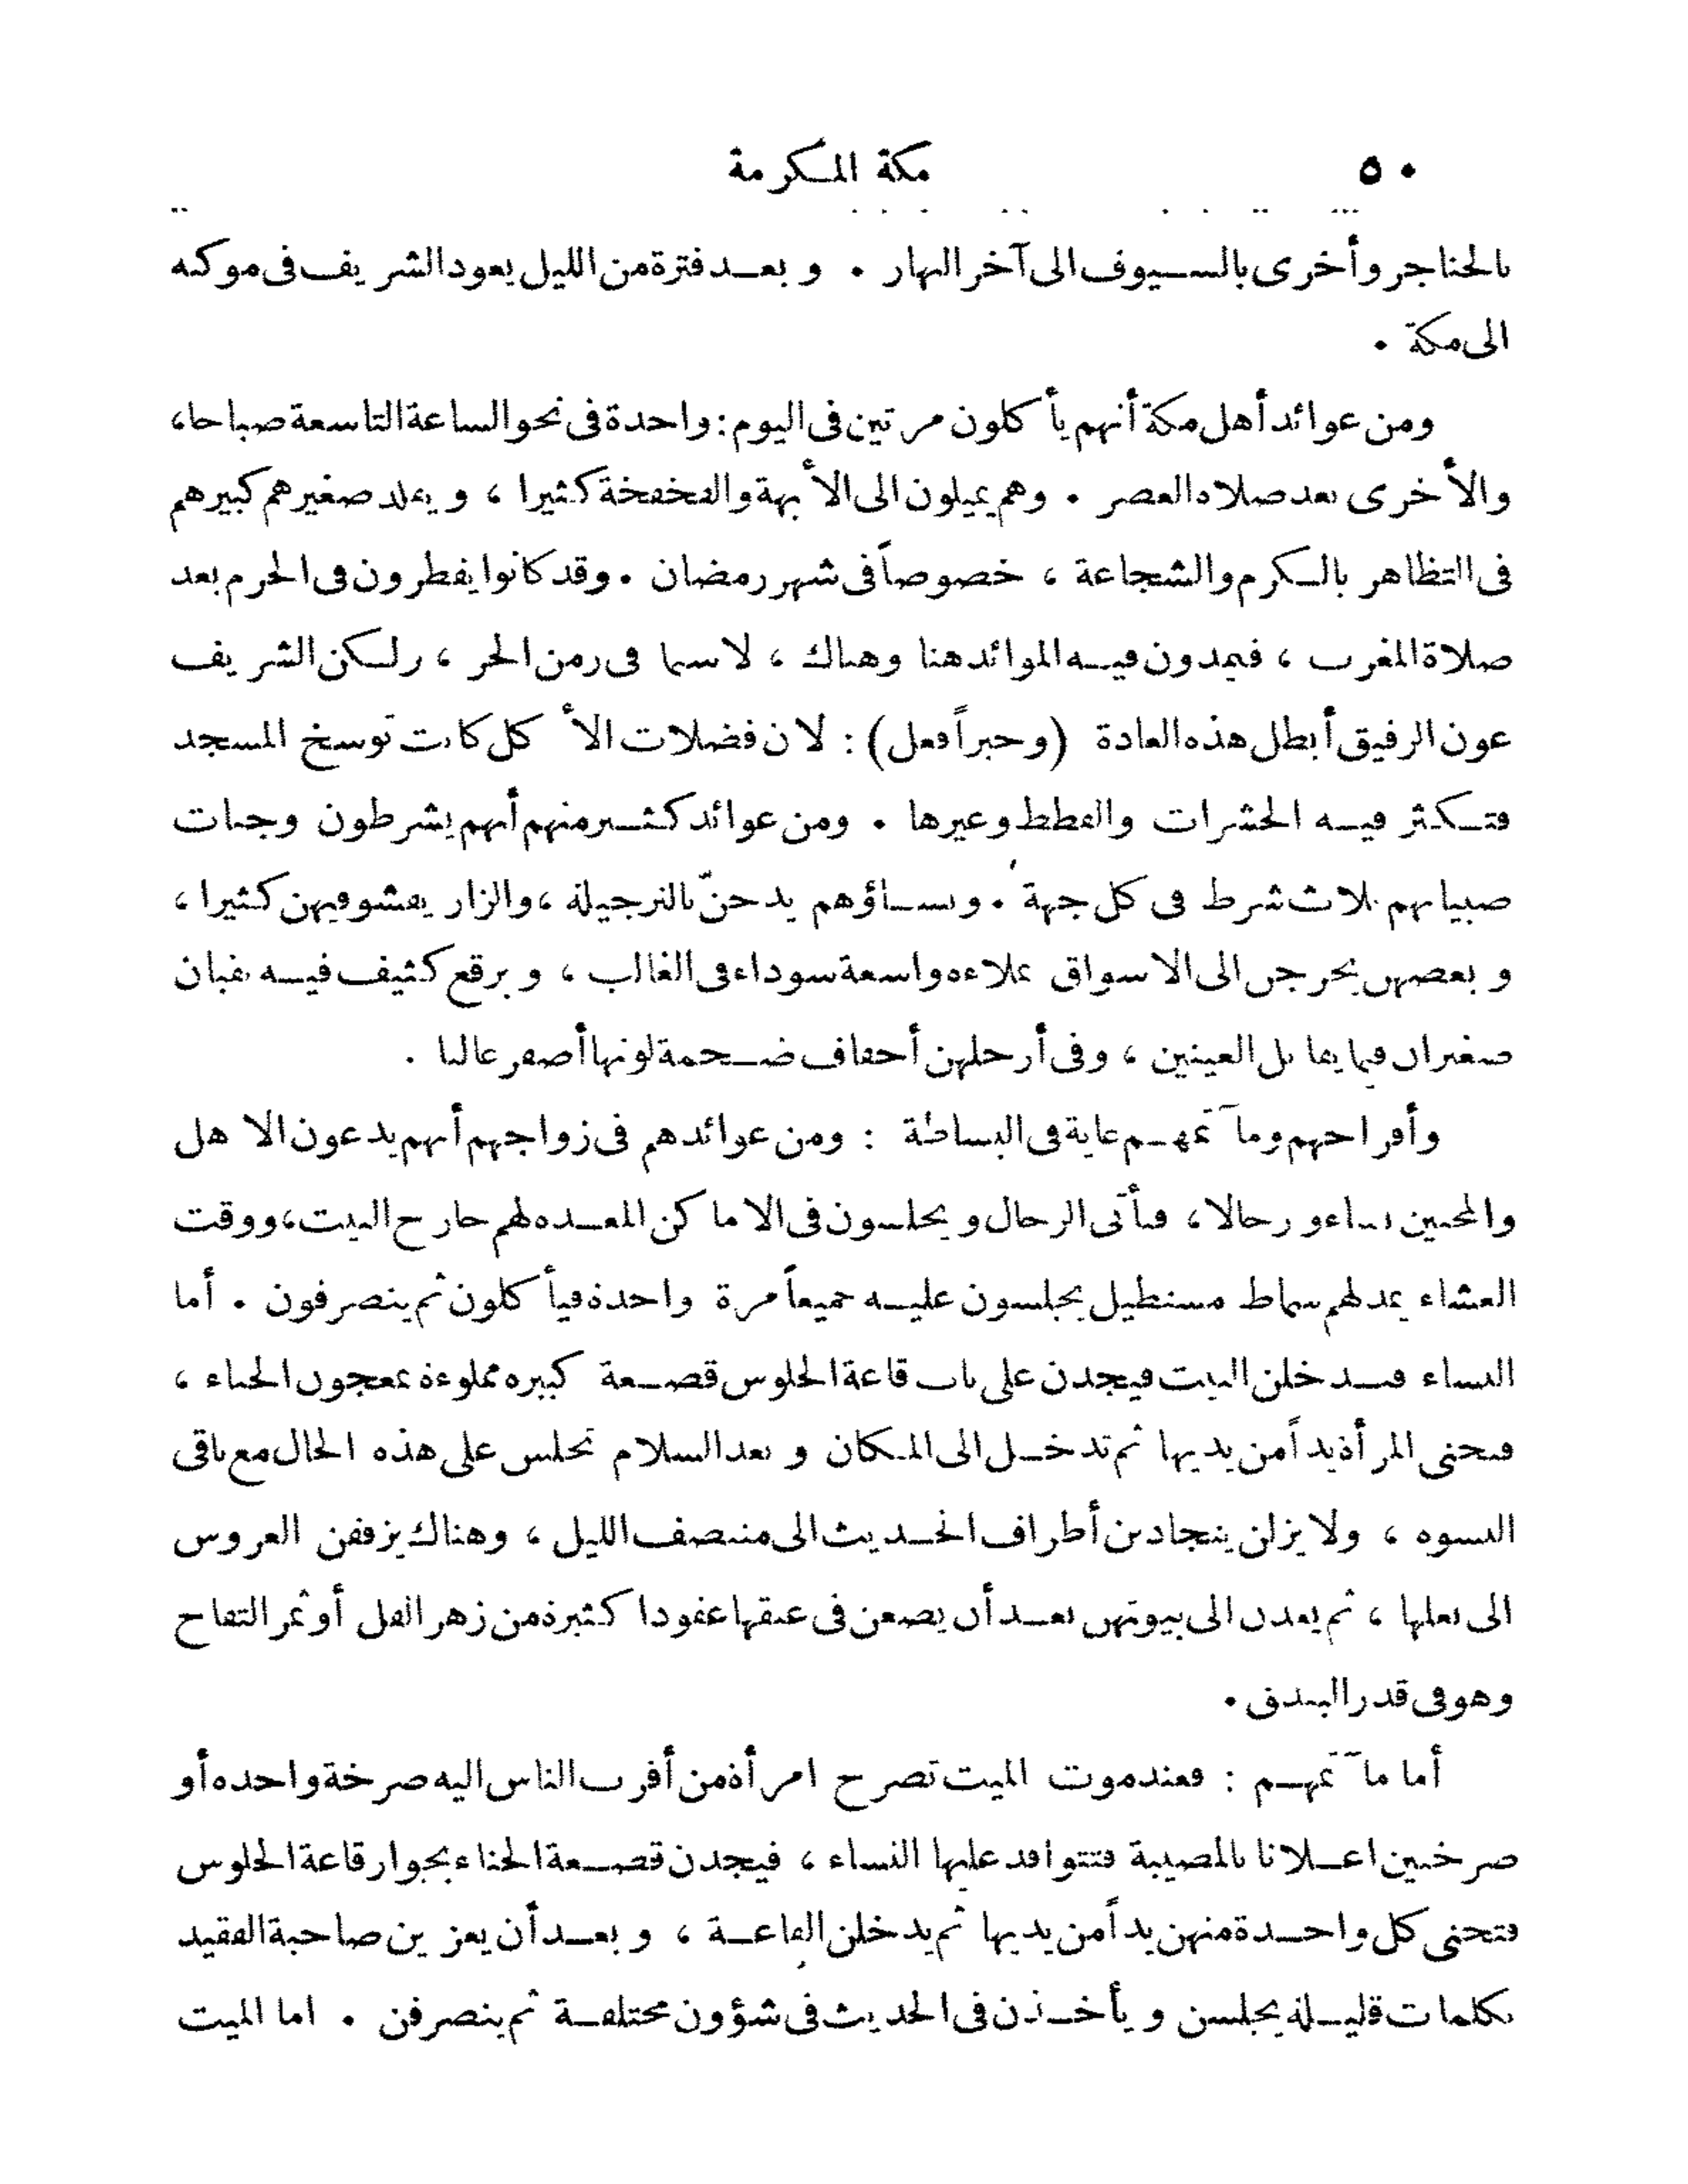 ٥٠ مكة المكرمة
بالحناجر وأخرى بالسيوف الى آخر النهار . وبعد فترة من الليل يعود الشريف فى موكبه
الى مكة .
ومن عوائد أهل مكة أنهم يأكلون مرتين فى اليوم : واحدة فى نحو الساعة التاسعة صباحا ،
والأخرى بعد صلاة العصر . وهم يميلون الى الأبهة والفخفخة كثيرا ، ويقلد صغيرهم كبيرهم
فى التظاهر بالكرم والشجاعة ، خصوصاً فى شهر رمضان . وقد كانوا يفطرون فى الحرم بعد
صلاة المغرب ، فيمدون فيه الموائد هنا وهناك ، لا سيما فى زمن الحر ، ولكن الشريف
عون الرفيق أبطل هذه العادة (وخيراً فعل) : لان فضلات الأكل كانت توسخ المسجد
فتكثر فيه الحشرات والقطط وغيرها . ومن عوائد كثير منهم أنهم يشرطون وجنات
صبيانهم ثلاث شرط فى كل جهة . ونساؤهم يدخنّ بالنرجيلة ، والزار يفشو فيهن كثيرا ،
وبعضهن يخرجن الى الاسواق بملاءة واسعة سوداء فى الغالب ، وبرقع كثيف فيه نقبان
صغيران فيما يقابل العينين ، وفى أرجلهن أخفاف ضخمة لونها أصفر غالبا .
وأفراحهم ومآتمهم غاية فى البساطة : ومن عوائدهم فى زواجهم أنهم يدعون الاهل
والمحبين نساء ورجالا ، فيأتى الرجال ويجلسون فى الاماكن المعدة لهم خارج البيت ، ووقت
العشاء يمد لهم سماط مستطيل يجلسون عليه جميعاً مرة واحدة فيأكلون ثم ينصرفون . أما
النساء فيدخلن البيت فيجدن على باب قاعة الجلوس قصعة كبيرة مملوءة بمعجون الحناء ،
فتحنى المرأة يداً من يديها ثم تدخل الى المكان وبعد السلام تجلس على هذه الحال مع باقى
النسوة ، ولا يزلن يتجاذبن أطراف الحديث الى منتصف الليل ، وهناك يزففن العروس
الى بعلها ، ثم يعدن الى بيوتهن بعد أن يضعن فى عنقها عقودا كثيرة من زهر الفل أو ثمر التفاح
وهو فى قدر البندق .
أما مآتمهم : فعند موت الميت تصرخ امرأة من أقرب الناس اليه صرخة واحدة أو
صرختين اعلانا بالمصيبة فتتوافد عليها النساء ، فيجدن قصعة الحناء بجوار قاعة الجلوس
فتحنى كل واحدة منهن يداً من يديها ثم يدخلن القاعة ، وبعد أن يعزين صاحبة الفقيد
بكلمات قليلة يجلسن ويأخذن فى الحديث فى شؤون مختلفة ثم ينصرفن . اما الميت